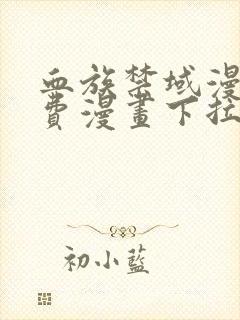 血族禁域漫
費漫畫下拉
初小藍